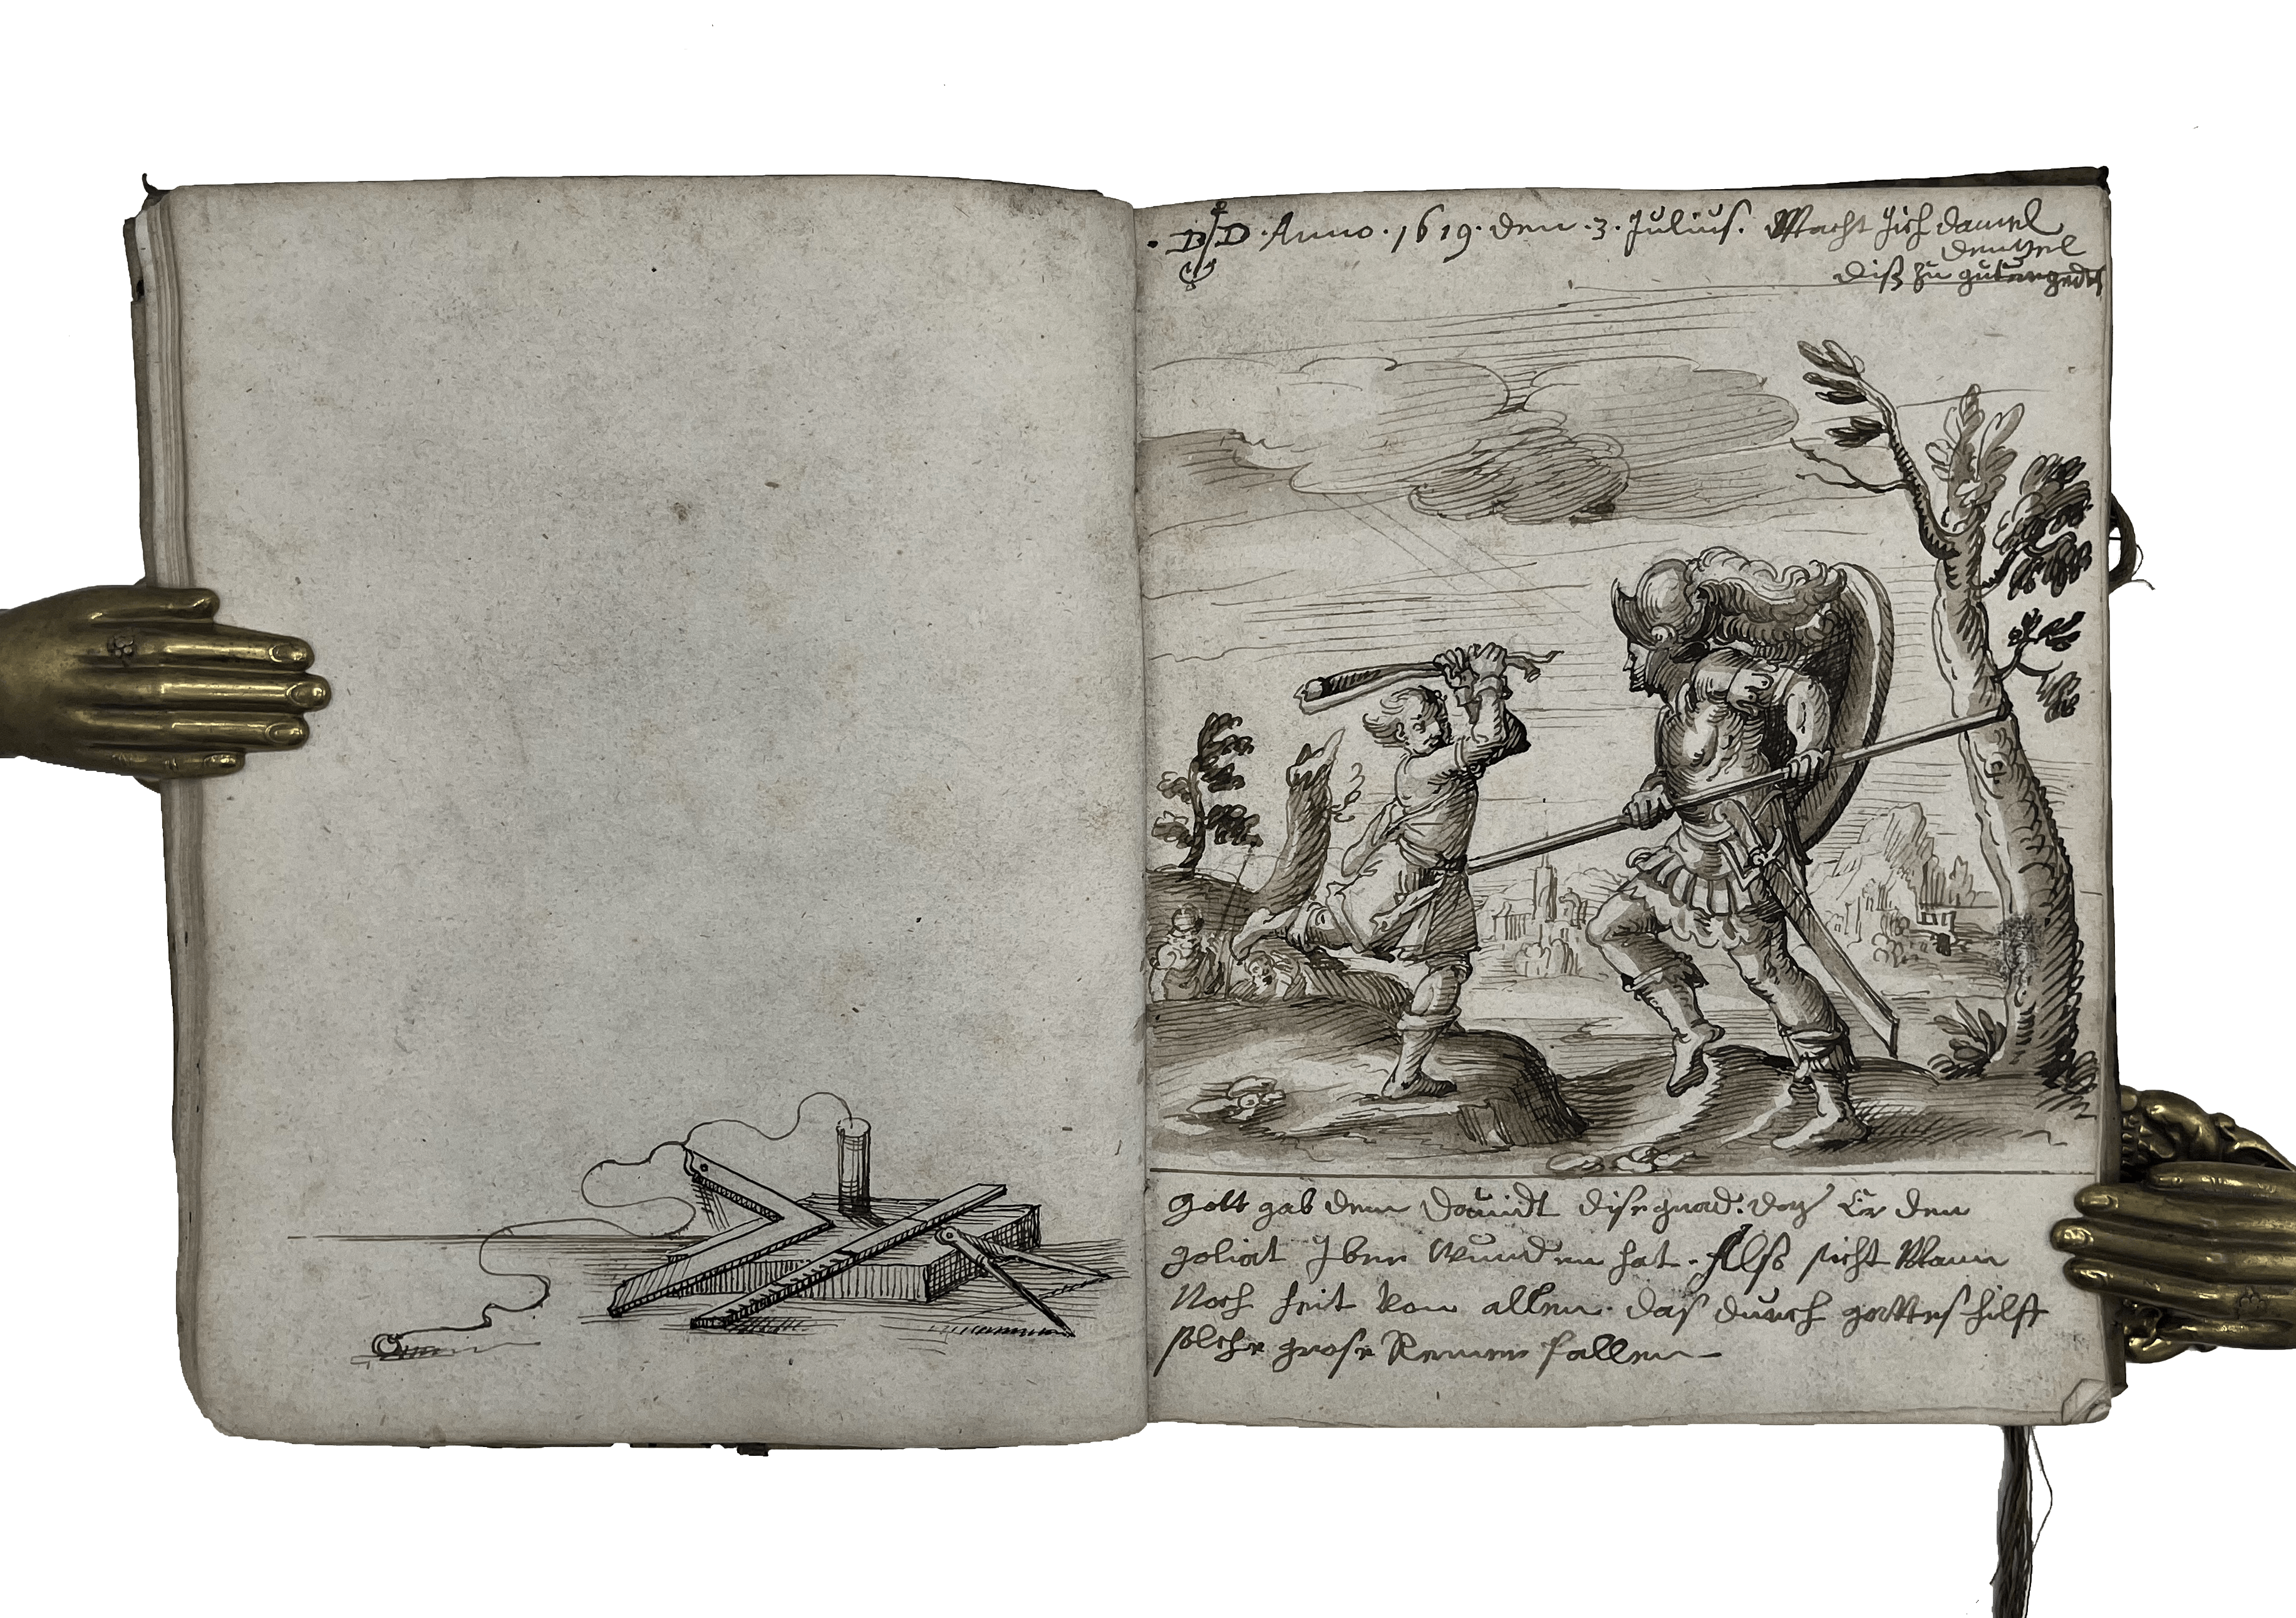 · D D · Anno · 1619 · den · 3 · Julius. Macht Jch daniel
dentzel
diß zu guter gedech
Gott gab dem Dauidt dise gnad: daz Er den
goliat Jber wunden hat. Alß sicht Mann
Noch heit von allen. daß durch gottes hilff
solche grose fallen